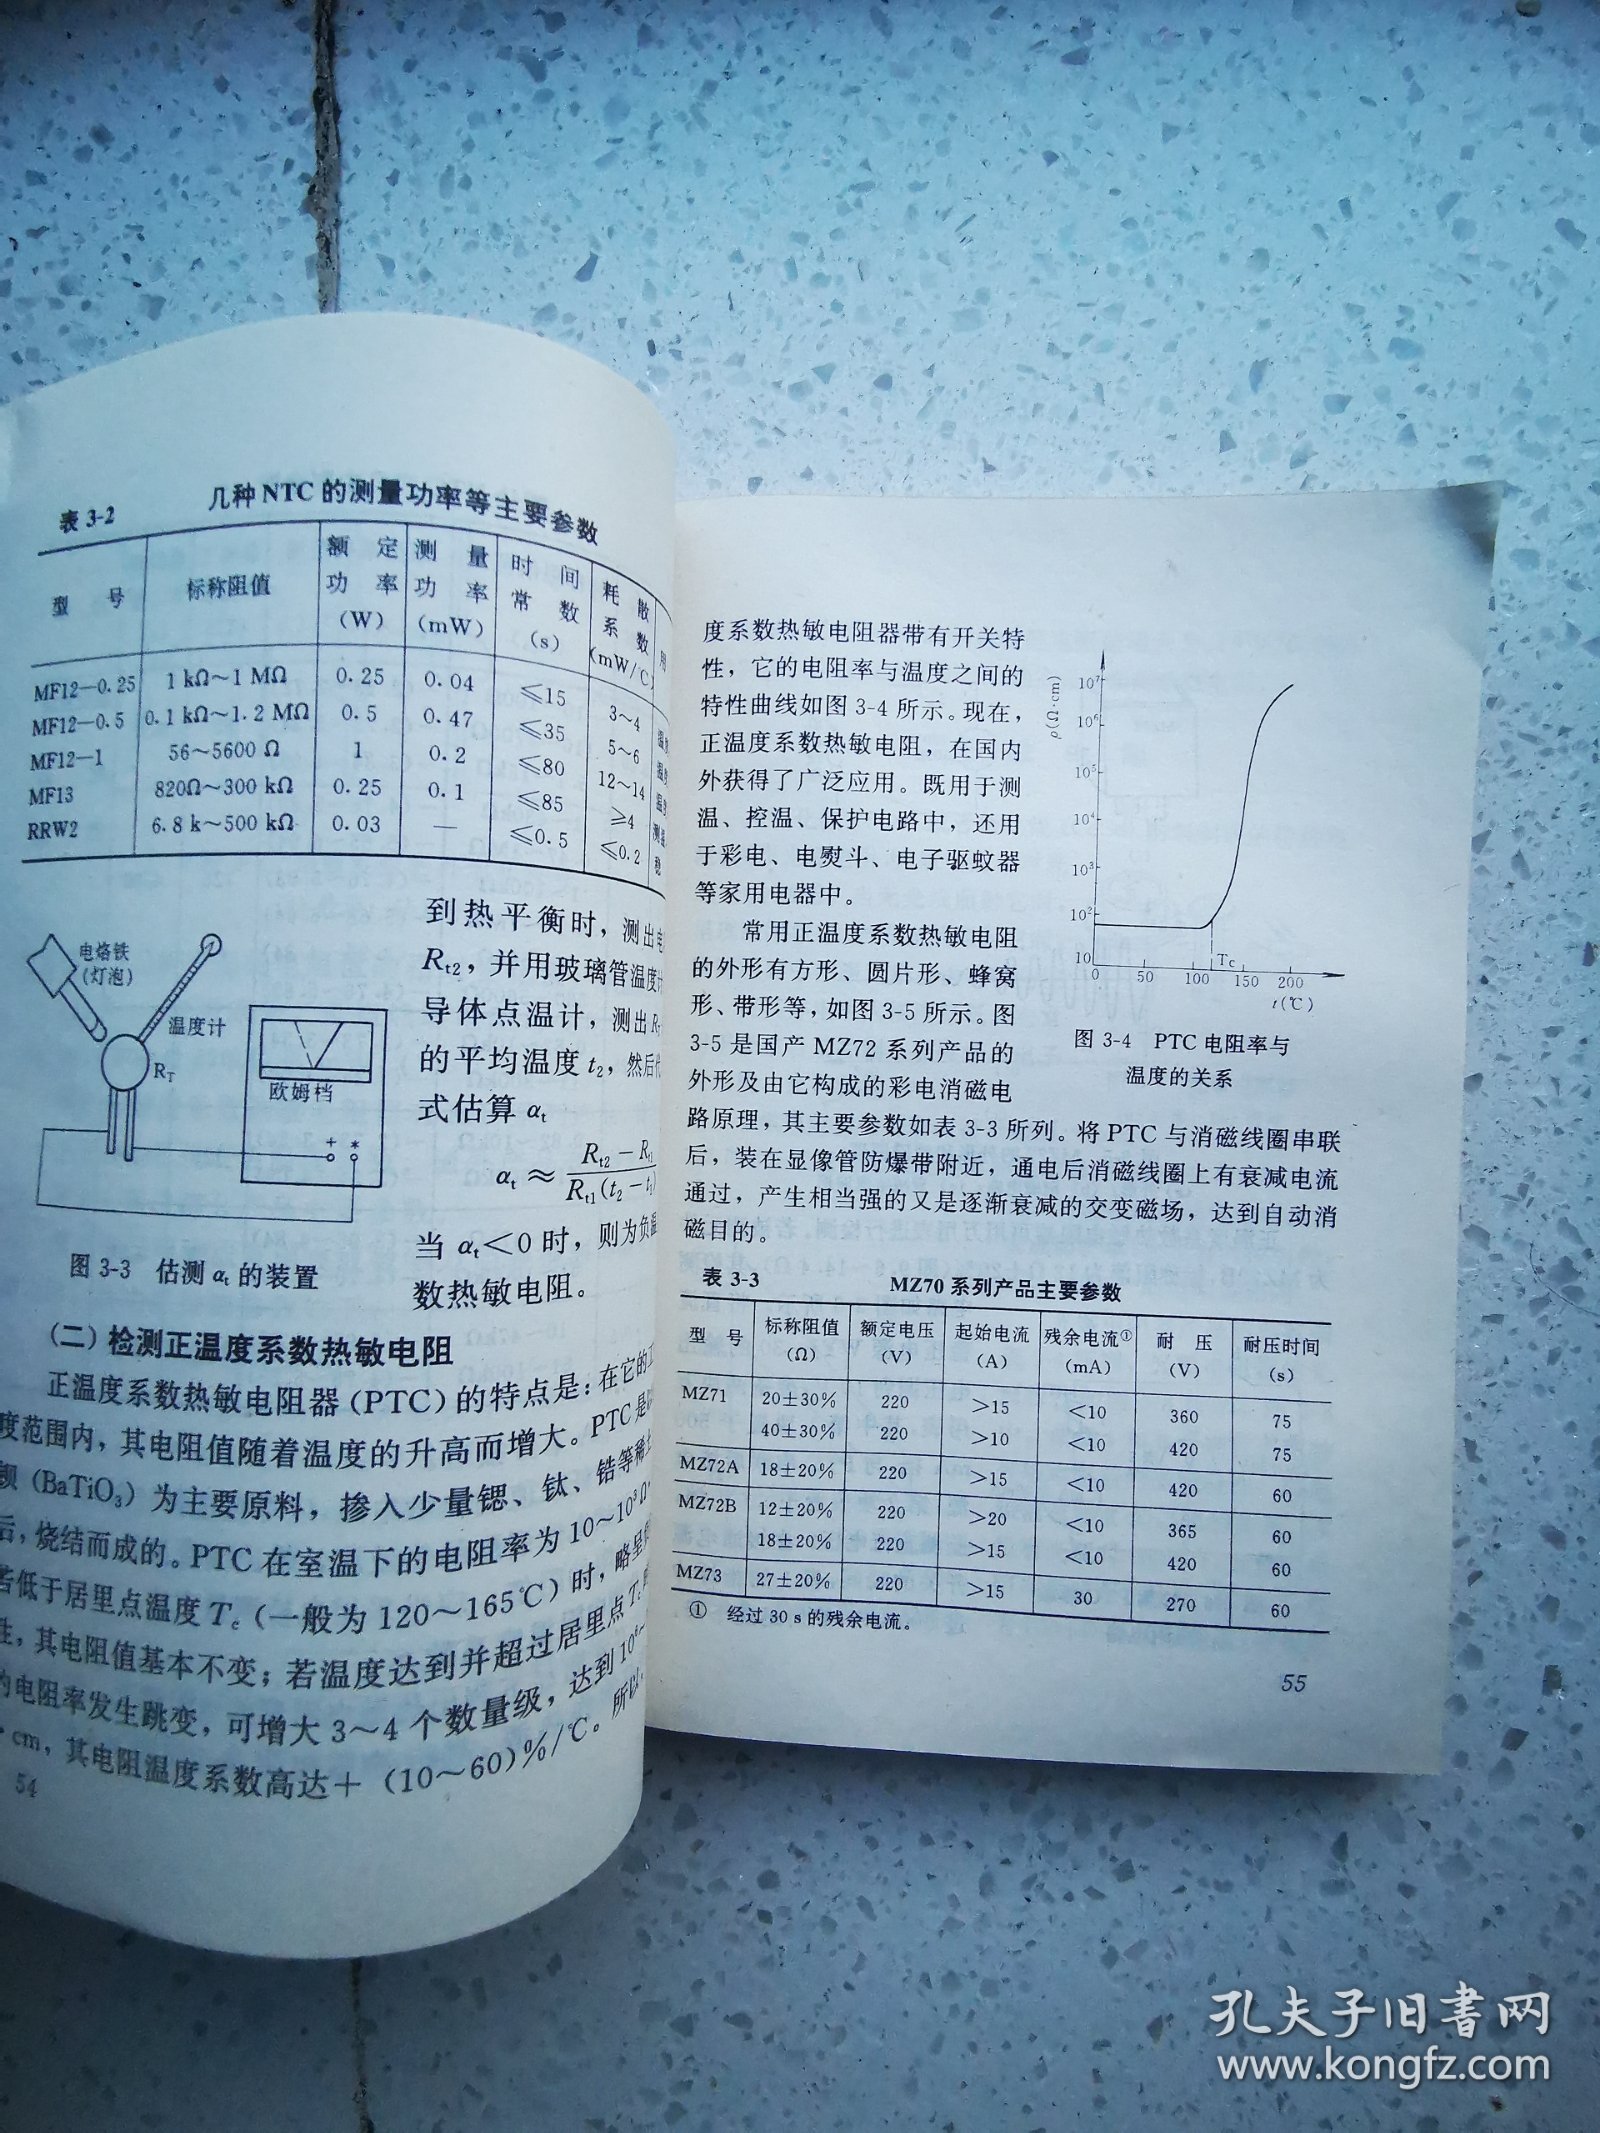 表 3-2 几种NTC的测量功率等主要参数
型 号 标称阻值 额定功率(W) 测量功率(mW) 时间常数(s) 耗散系数(mW/℃)
MF12—0.25 1 kΩ～1 MΩ 0.25 0.04 ≤15 3～4
MF12—0.5 0.1 kΩ～1.2 MΩ 0.5 0.47 ≤35 5～6
MF12—1 56～5600 Ω 1 0.2 ≤80 12～14
MF13 820Ω～300 kΩ 0.25 0.1 ≤85 ≥4
RRW2 6.8 k～500 kΩ 0.03 — ≤0.5 ≤0.2
电烙铁
(灯泡)
温度计
R_T
欧姆档
+ *
图 3-3 估测 α_t 的装置
到热平衡时，测出
R_t2，并用玻璃管温度
导体点温计，测出
的平均温度 t₂，然后
式估算 α_t
α_t ≈ (R_t2 − R_t1) / (R_t1 (t₂ − t₁))
当 α_t＜0 时，则为负温
数热敏电阻。
(二) 检测正温度系数热敏电阻
正温度系数热敏电阻器 (PTC) 的特点是：在它的
度范围内，其电阻值随着温度的升高而增大。PTC是
钡 (BaTiO₃) 为主要原料，掺入少量锶、钛、锆等稀
后，烧结而成的。PTC 在室温下的电阻率为 10～10³Ω
若低于居里点温度 T_c (一般为 120～165℃) 时，略呈
性，其电阻值基本不变；若温度达到并超过居里点 T_c
的电阻率发生跳变，可增大 3～4 个数量级，达到 10⁶～
· cm，其电阻温度系数高达＋ (10～60)%/℃。所以，
54
度系数热敏电阻器带有开关特
性，它的电阻率与温度之间的
特性曲线如图 3-4 所示。现在，
正温度系数热敏电阻，在国内
外获得了广泛应用。既用于测
温、控温、保护电路中，还用
于彩电、电熨斗、电子驱蚊器
等家用电器中。
常用正温度系数热敏电阻
的外形有方形、圆片形、蜂窝
形、带形等，如图 3-5 所示。图
3-5 是国产 MZ72 系列产品的
外形及由它构成的彩电消磁电
路原理，其主要参数如表 3-3 所列。将 PTC 与消磁线圈串联
后，装在显像管防爆带附近，通电后消磁线圈上有衰减电流
通过，产生相当强的又是逐渐衰减的交变磁场，达到自动消
磁目的。
ρ(Ω·cm)
10⁷
10⁶
10⁵
10⁴
10³
10²
10
0 50 100 Tc 150 200
t(℃)
图 3-4 PTC 电阻率与
温度的关系
表 3-3 MZ70 系列产品主要参数
型 号 标称阻值(Ω) 额定电压(V) 起始电流(A) 残余电流①(mA) 耐 压(V) 耐压时间(s)
MZ71 20±30% 220 ＞15 ＜10 360 75
40±30% 220 ＞10 ＜10 420 75
MZ72A 18±20% 220 ＞15 ＜10 420 60
MZ72B 12±20% 220 ＞20 ＜10 365 60
18±20% 220 ＞15 ＜10 420 60
MZ73 27±20% 220 ＞15 30 270 60
① 经过 30 s 的残余电流。
55
孔夫子旧书网
www.kongfz.com